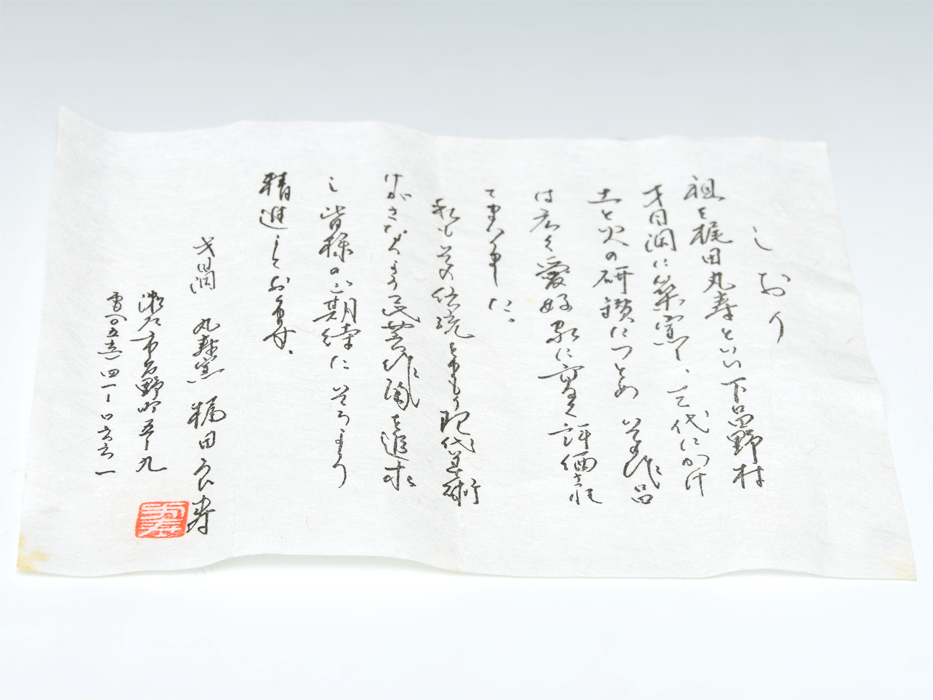 しおり
祖を梶田丸寿といい下品野村
才日洞に築窯し、三代にかけ
土と火の研鑚につとめ その作品
は広く愛好家に高く評価され
て
私もその伝統をまもり現代美術
けがさぬよう民芸作陶を追求
し皆様のご期待に
精進しております。
才日洞 丸寿窯 梶田良寿
瀬戸市品野町五ー九
電〇五六一四一ー〇六六一